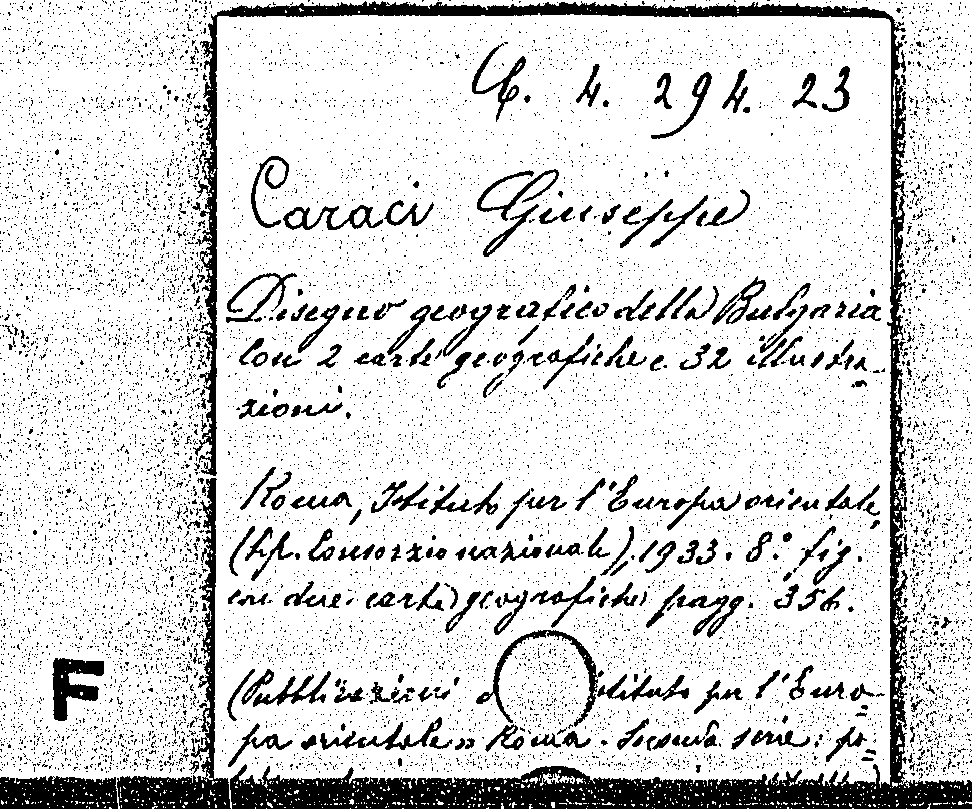 C. 4. 294. 23
Caraci Giuseppe
Disegno geografico della Bulgaria
Con 2 carte geografiche e 32 illustra-
zioni.
Roma, Istituto per l'Europa orientale,
(tip. Consorzio nazionale), 1933. 8.° fig.
con due carte geografiche pagg.
F
(Pubblicazioni stituto per l'Euro-
pa orientale» Roma. Seconda serie: po-